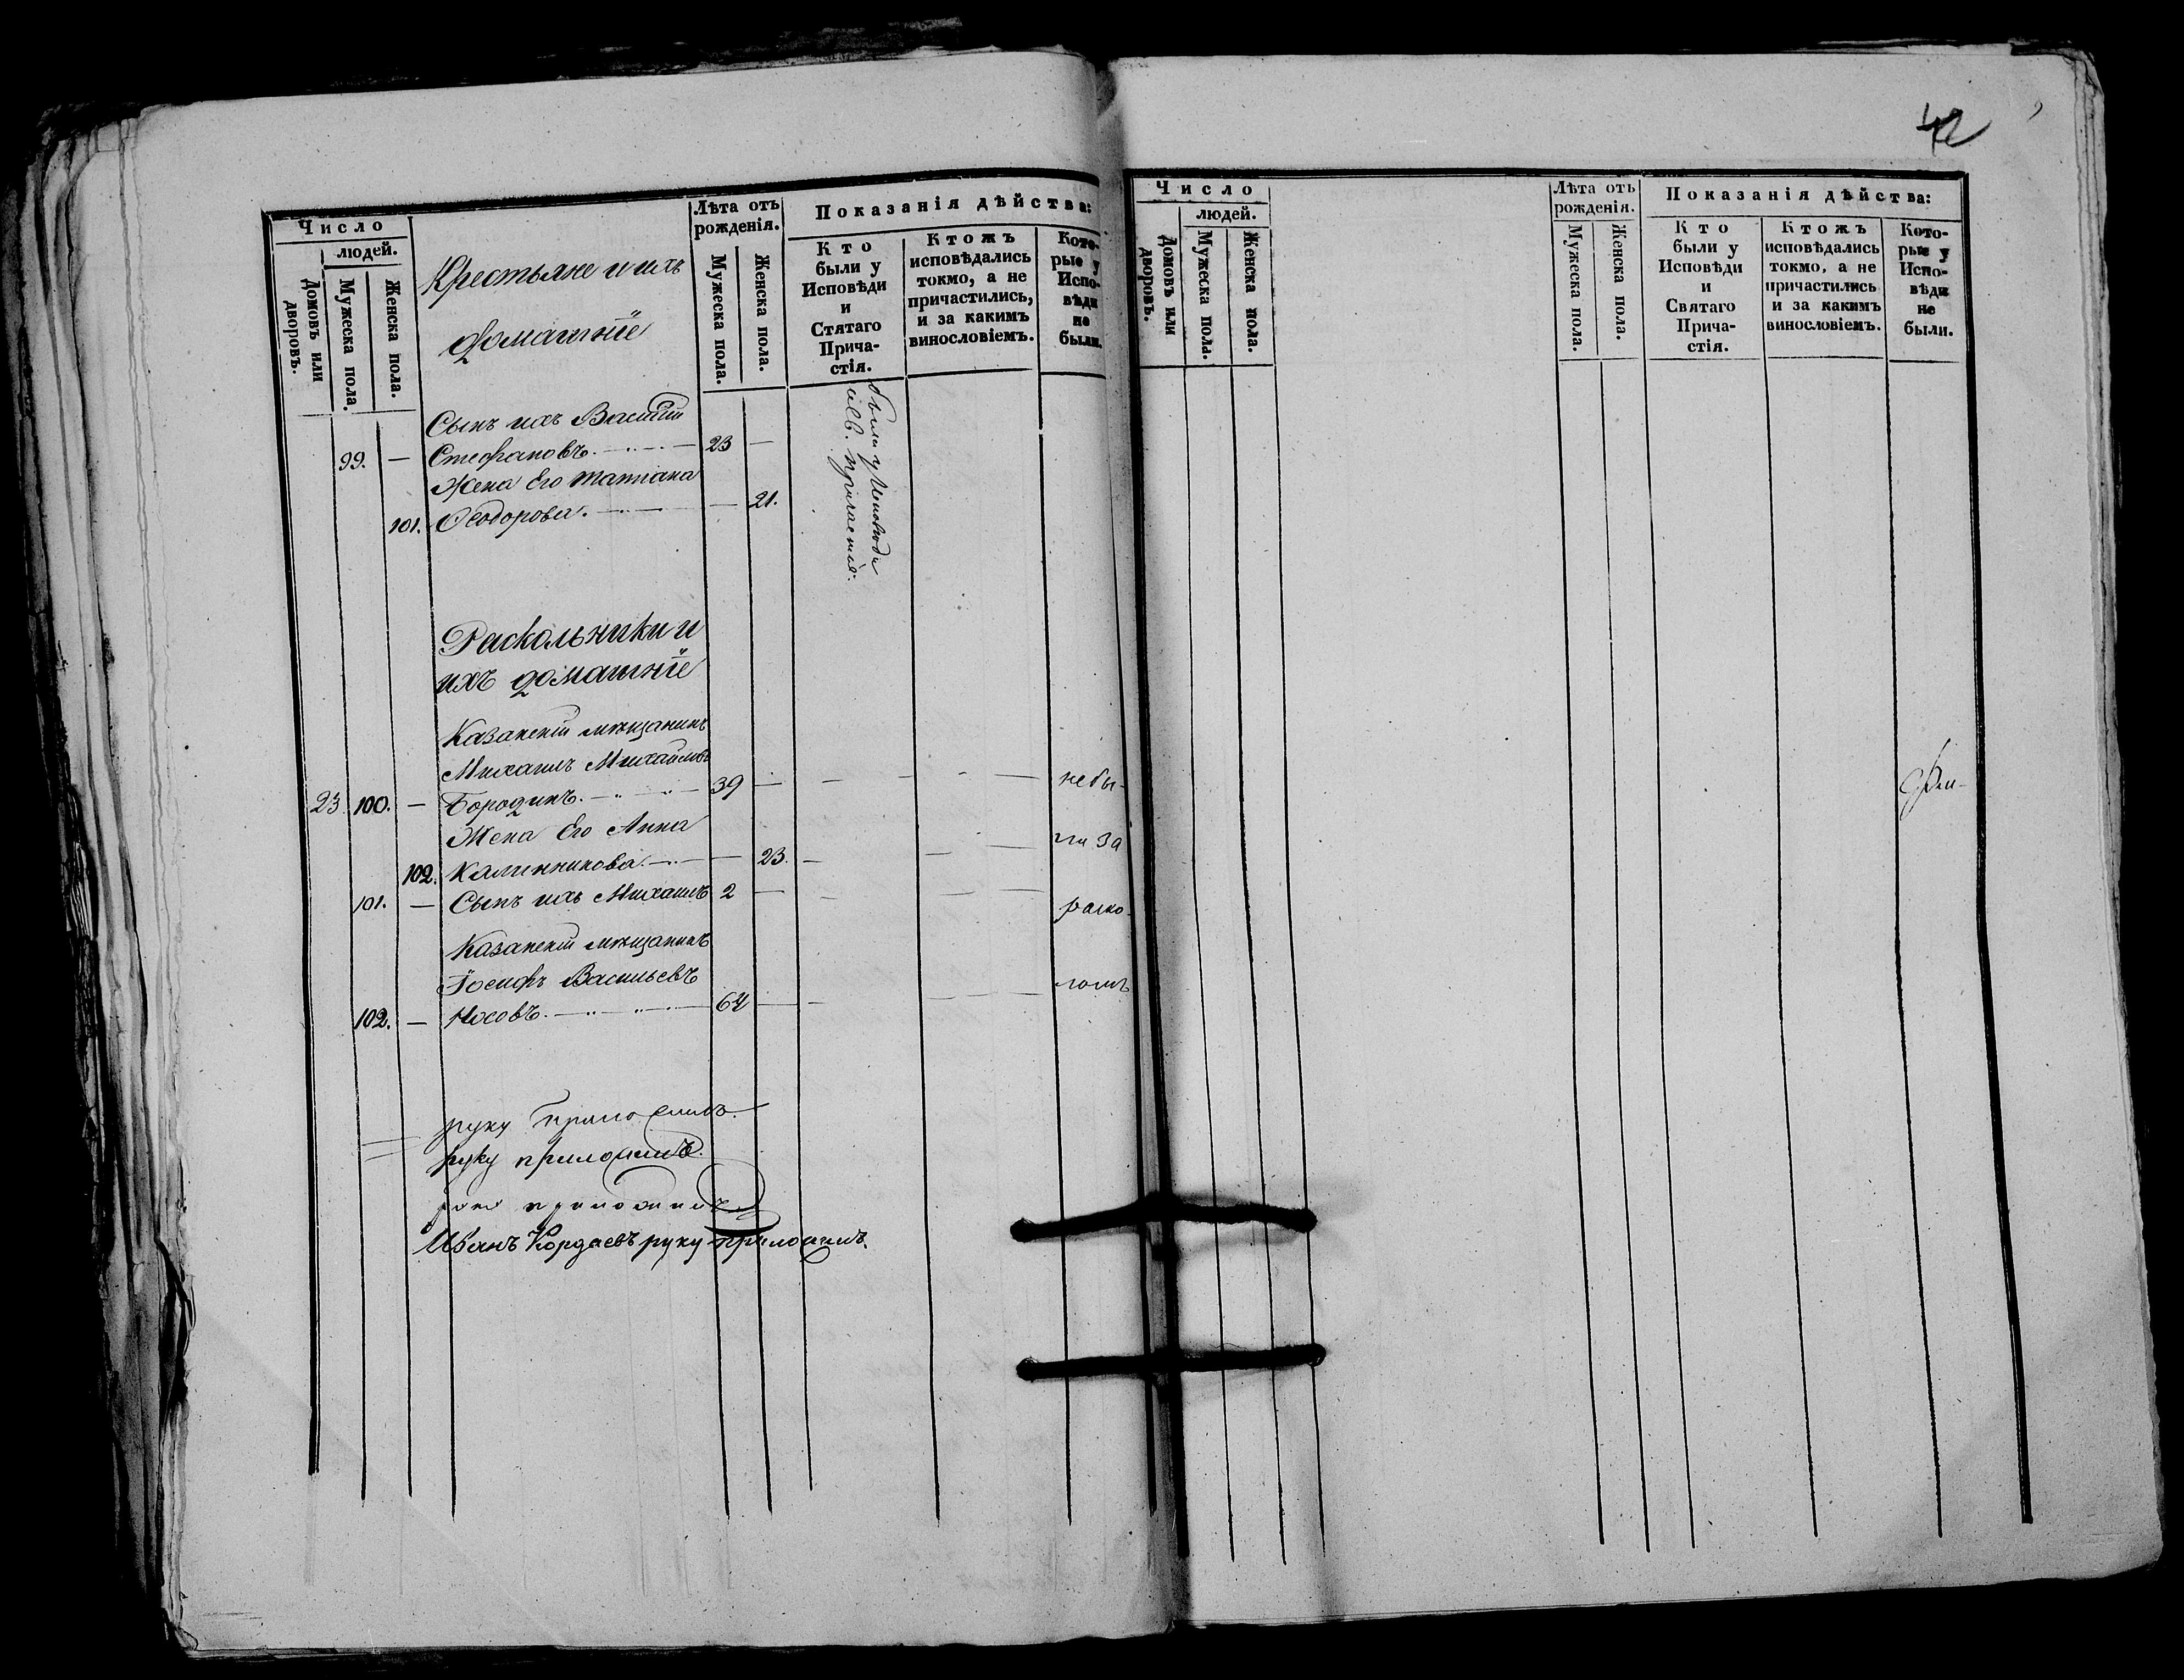 42
Число
людей.
Домовъ или дворовъ.
Мужеска пола.
Женска пола.
Крестьяне и ихъ
домашніе
Лѣта отъ рожденія.
Мужеска пола.
Женска пола.
Показанія дѣйства:
Кто были у Исповѣди и Стятаго Прича-стія.
Ктожъ исповѣдались токмо, а не причастились, и за какимъ винословіемъ.
Кото-рые у Испо-вѣди не были.
Сынъ ихъ Василій
99. — Стефановъ. — 23 —
Жена Его Татіана
101. Ѳеодорова. — — 21.
были у Исповѣди
и св. причастія.
Раскольники и
ихъ домашніе
Казанскій мѣщанинъ
Михаилъ Михайловъ
23 100. — Бородинъ. — 39 — — — небы-
Жена Его Анна
102. Калинникова. — — 23. — — ли за
101. — Сынъ ихъ Михаилъ 2 — — — раско-
Казанскій мѣщанинъ
Іосифъ Васильевъ
102. — Носовъ. — 64 — — — ломъ
руку приложилъ.
руку приложилъ.
приложилъ
Иванъ Кордаевъ руку приложилъ.
Число
людей.
Домовъ или дворовъ.
Мужеска пола.
Женска пола.
Лѣта отъ рожденія.
Мужеска пола.
Женска пола.
Показанія дѣйства:
Кто были у Исповѣди и Святаго Прича-стія.
Ктожъ исповѣдались токмо, а не причастились и за какимъ винословіемъ.
Кото-рые у Испо-вѣди не были.